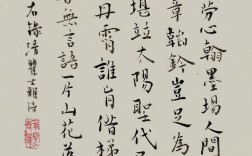 勞心翰墨場人間
章韜鈐豈足為
堪並太陽聖代
丹霄誰肯借梯
無言語一片山花落
右錄清瞿士雅詩